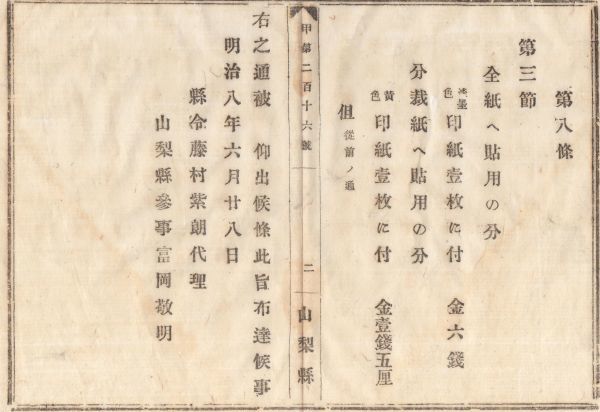 第八條
第三節
全紙ヘ貼用の分
淡墨色 印紙壹枚に付 金六錢
分裁紙ヘ貼用の分
黄色 印紙壹枚に付 金壹錢五厘
但 從前ノ通
甲第二百十六號 二 山梨縣
右之通被 仰出候條此旨布達候事
明治八年六月廿八日
縣令藤村紫朗代理
山梨縣參事富岡敬明